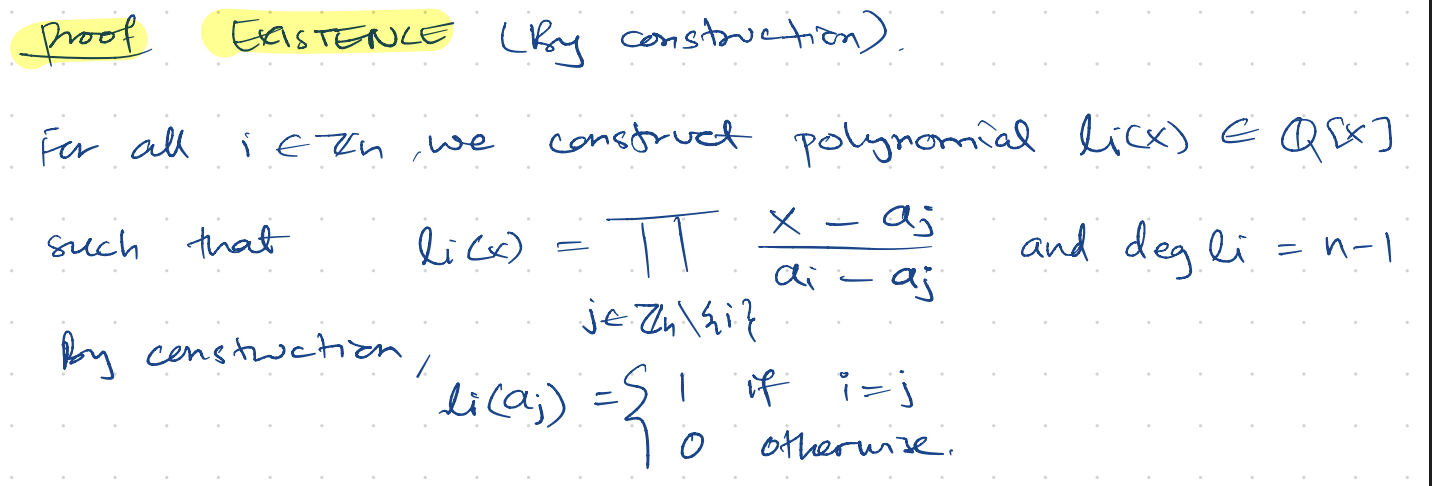 Proof EXISTENCE (By construction).
For all i ∈ ℤn, we construct polynomial li(x) ∈ Q[x]
such that li(x) = ∏ j∈ℤn\{i} (x - aj)/(ai - aj) and deg li = n-1
By construction,
li(aj) = { 1 if i=j
0 otherwise.